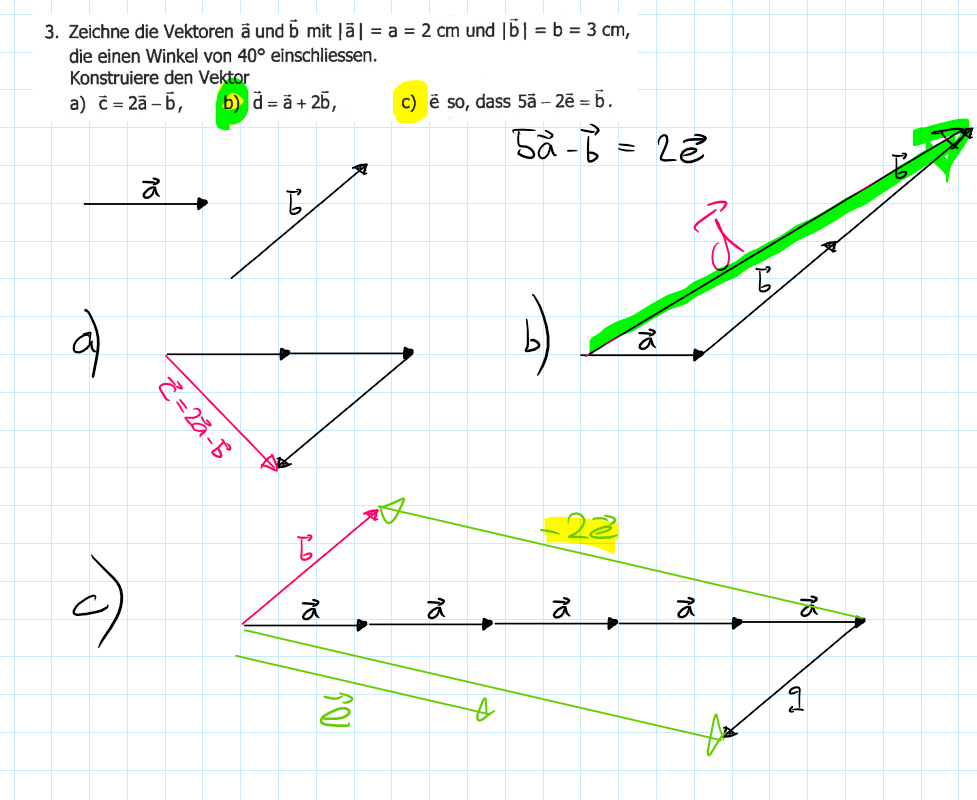 3. Zeichne die Vektoren a⃗ und b⃗ mit |a⃗| = a = 2 cm und |b⃗| = b = 3 cm,
die einen Winkel von 40° einschliessen.
Konstruiere den Vektor
a) c⃗ = 2a⃗ – b⃗, b) d⃗ = a⃗ + 2b⃗, c) e⃗ so, dass 5a⃗ – 2e⃗ = b⃗.
5a⃗ - b⃗ = 2e⃗
a⃗
b⃗
b⃗
d⃗
b⃗
a)
b)
a⃗
c⃗ = 2a⃗ - b⃗
-2e⃗
b⃗
c)
a⃗ a⃗ a⃗ a⃗ a⃗
e⃗